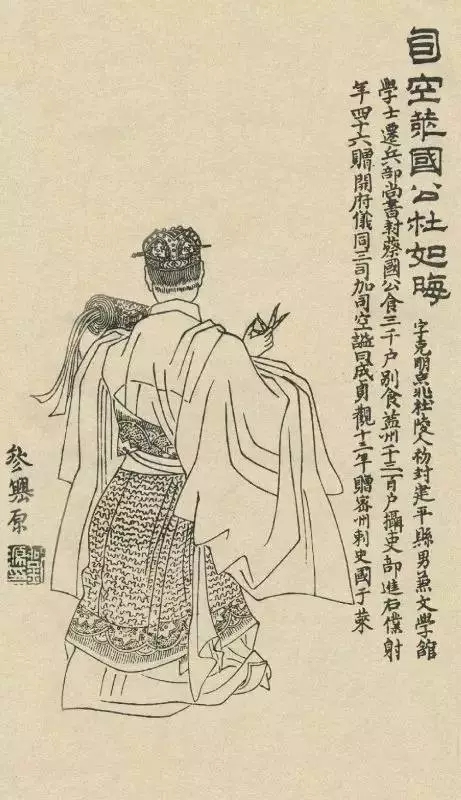 司空萊國公杜如晦
字克明京兆杜陵人初封建平縣男兼文學館
學士遷兵部尚書封蔡國公食三千户別食益州千三百户攝吏部進右僕射
年四十六贈開府儀同三司加司空謚曰成貞觀十三年贈密州刺史國于萊
參興原